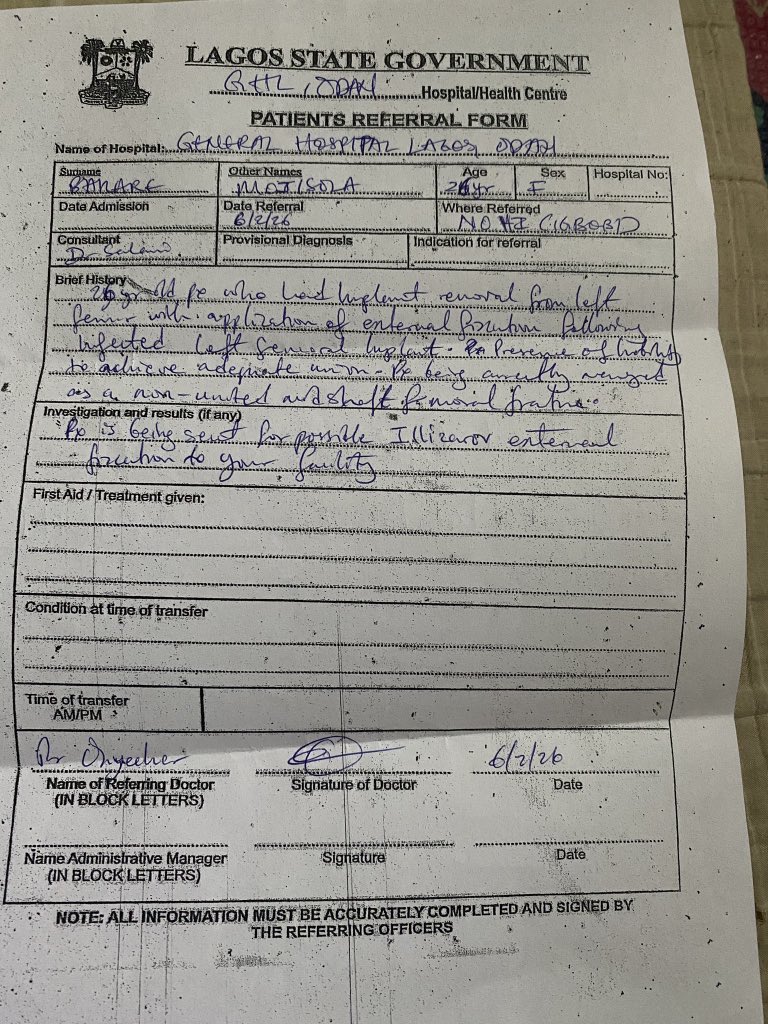 LAGOS STATE GOVERNMENT
GHL, ODAN Hospital/Health Centre
PATIENTS REFERRAL FORM
Name of Hospital: GENERAL HOSPITAL LAGOS, ODAN
Surname Other Names Age Sex Hospital No:
BAKARE MOJISOLA 26yr F
Date Admission Date Referral Where Referred
6/2/26 NOHI (IGBOBI)
Consultant Provisional Diagnosis Indication for referral
Dr
Brief History
26yr old px who had implant removal from left
femur with application of external fixation following
infected left femoral implant. Presence of
to achieve adequate union. Px being currently managed
as a non-united midshaft femoral fracture.
Investigation and results (if any)
Px is being sent for possible Illizarov external
fixation to your facility
First Aid / Treatment given:
Condition at time of transfer
Time of transfer
AM/PM
Dr 6/2/26
Name of Referring Doctor Signature of Doctor Date
(IN BLOCK LETTERS)
Name Administrative Manager Signature Date
(IN BLOCK LETTERS)
NOTE: ALL INFORMATION MUST BE ACCURATELY COMPLETED AND SIGNED BY
THE REFERRING OFFICERS